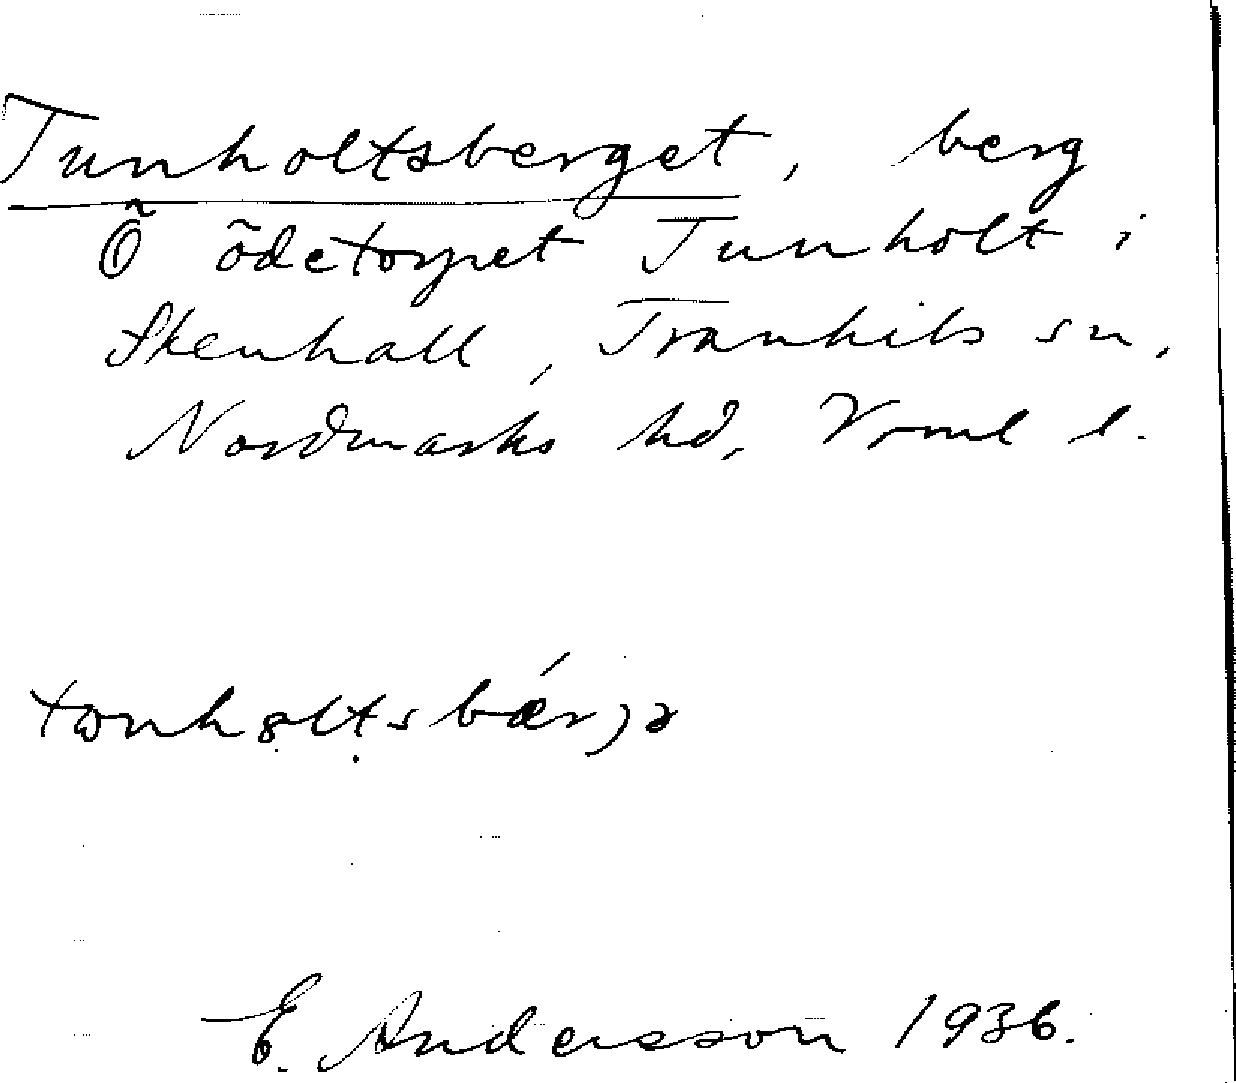 Tunholtsberget, berg
Ö ödetorpet Tunholt i
Skenhall, Trankils sn,
Nordmarks hd, Vrml l.
E. Andersson 1936.